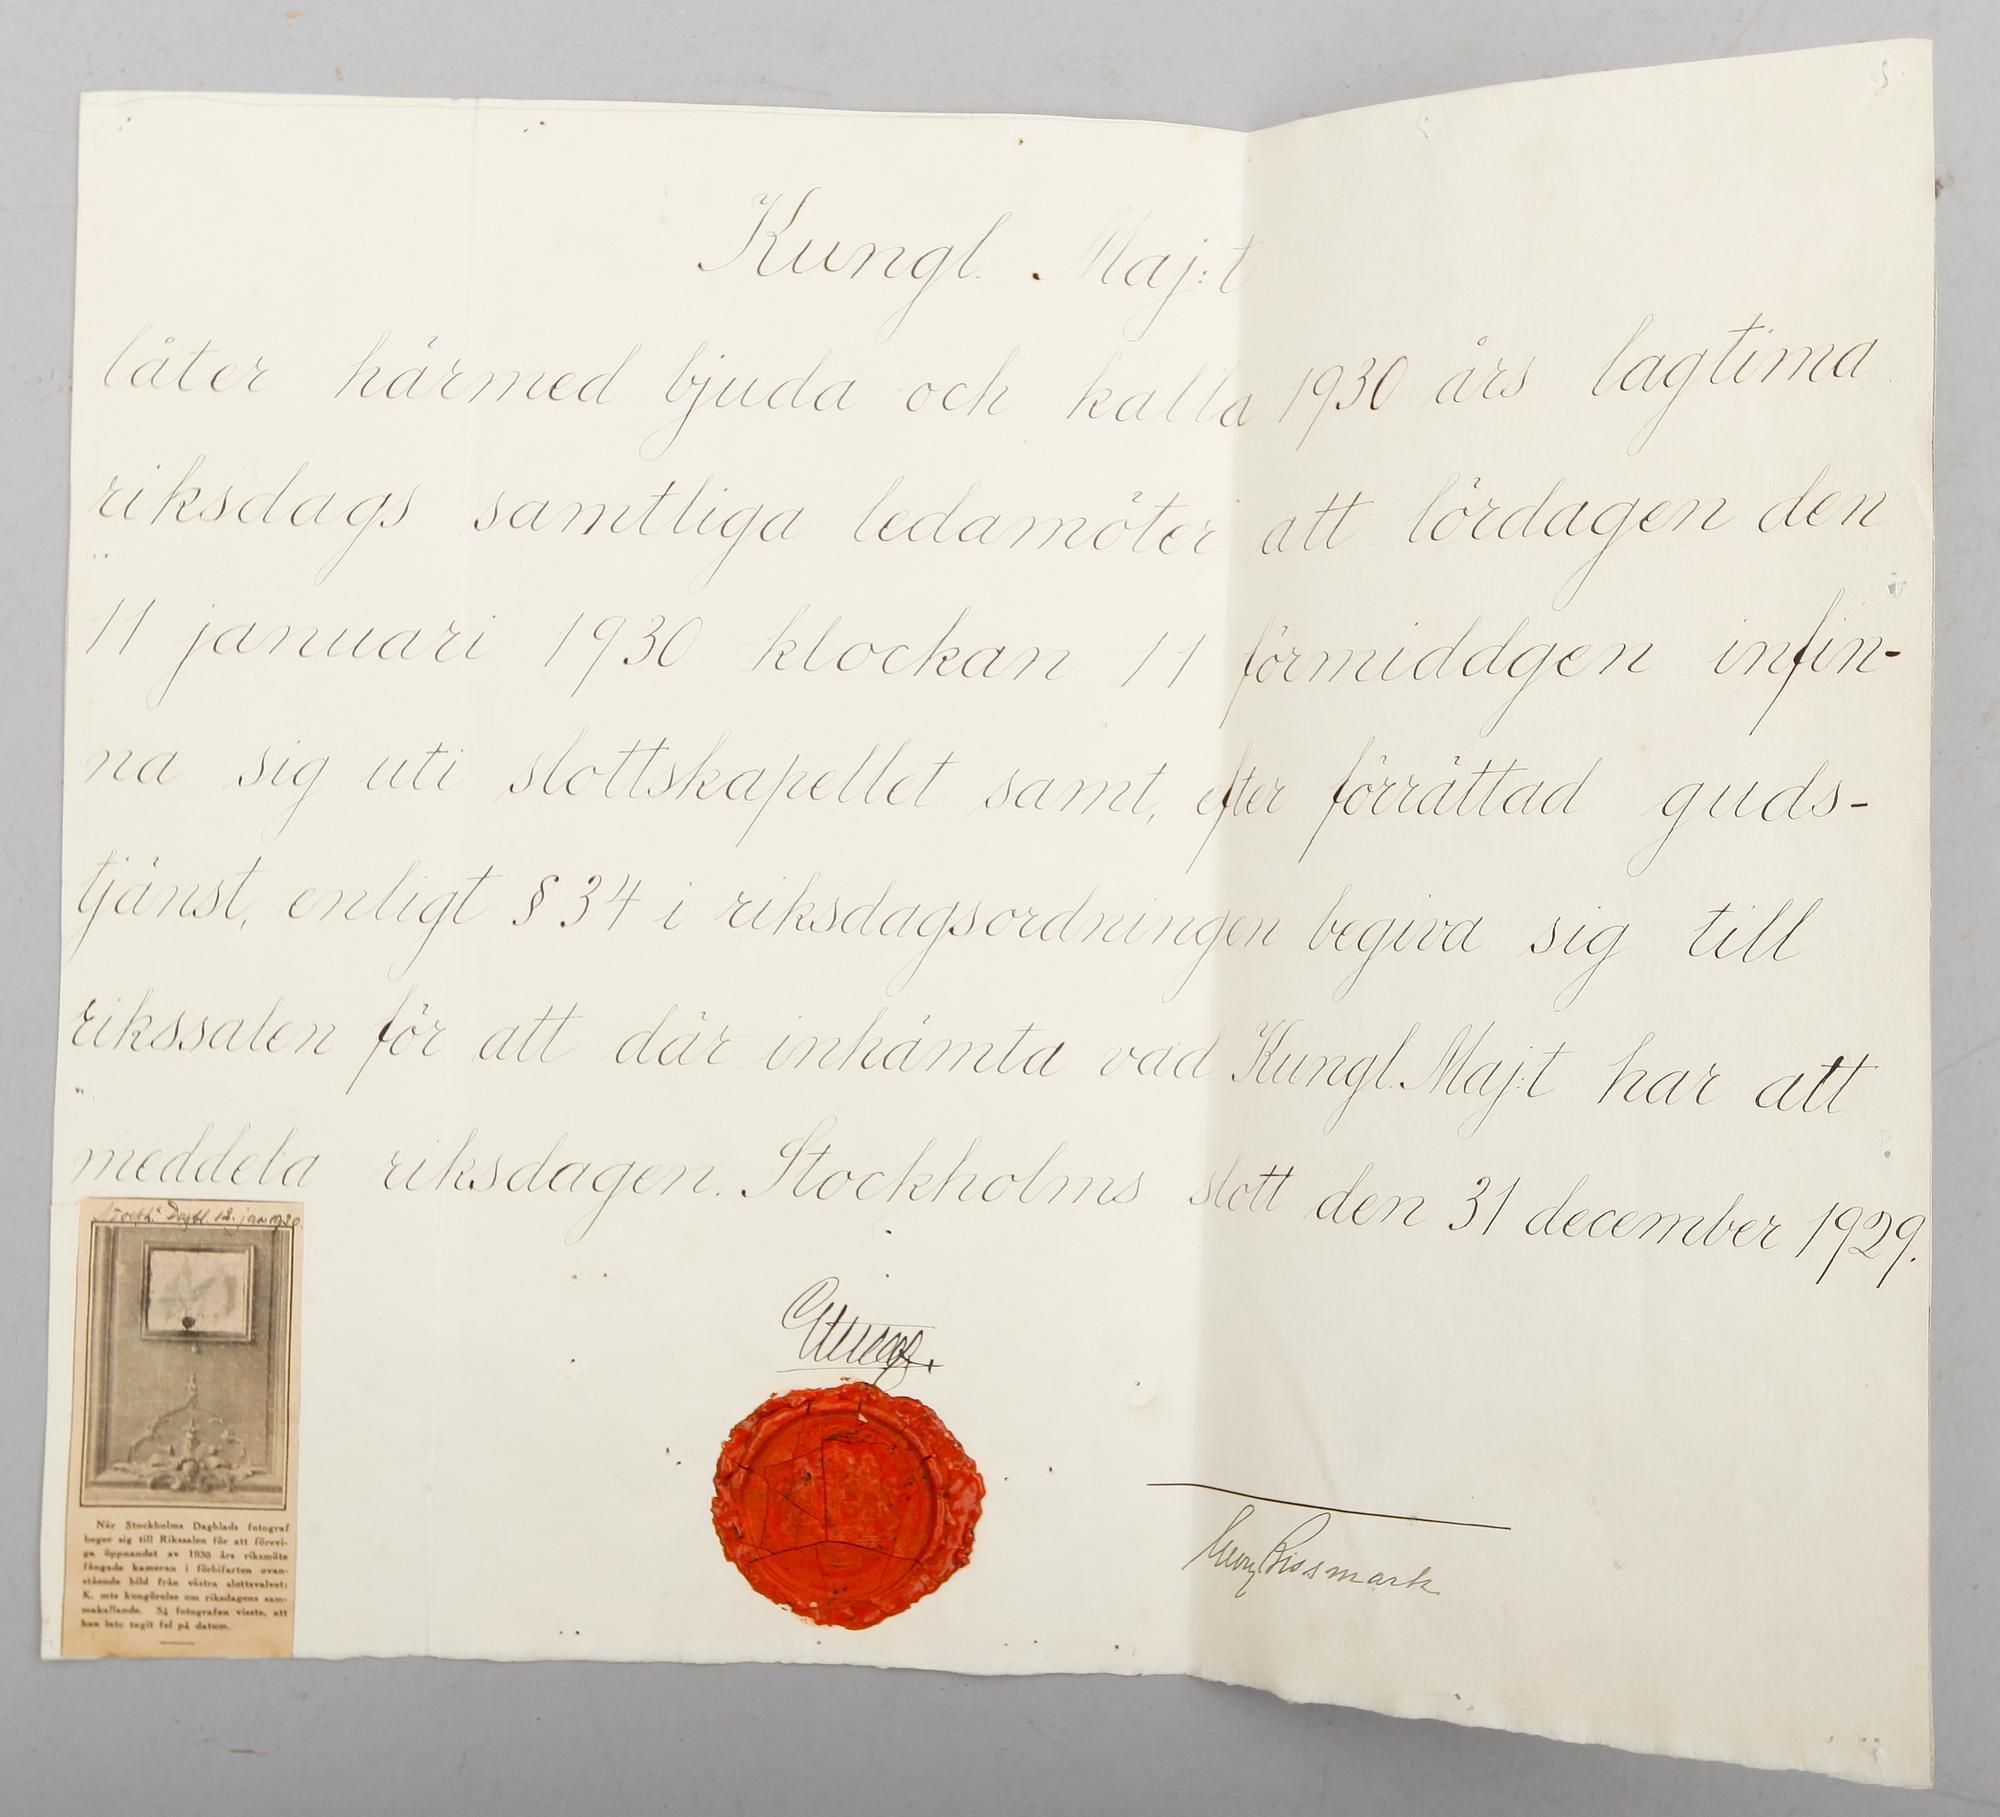 Kungl. Maj:t
låter härmed bjuda och kalla 1930 års lagtima
riksdags samtliga ledamöter att lördagen den
11 januari 1930 klockan 11 förmiddgen infin-
na sig uti slottskapellet samt, efter förrättad guds-
tjänst, enligt § 34 i riksdagsordningen begiva sig till
rikssalen för att där inhämta vad Kungl. Maj:t har att
meddela riksdagen. Stockholms slott den 31 december 1929.
Stockh. Dagbl. 12. jan 1930.
När Stockholms Dagblads fotograf
beger sig till Rikssalen för att förevi-
ga öppnandet av 1930 års riksmöte
fångade kameran i förbifarten ovan-
stående bild från västra slottsvalvet:
K. mts kungörelse om riksdagens sam-
makallande. Så fotografen visste, att
han inte tagit fel på datum.
Bissmark